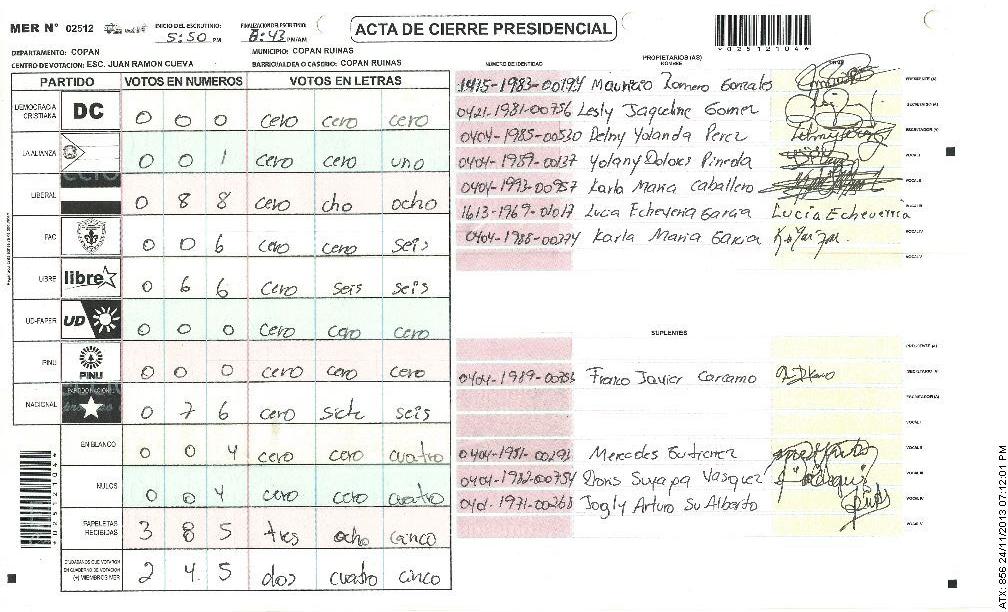 MER N° 02512 INICIO DEL ESCRUTINIO: 5:50 PM FINALIZACION DEL ESCRUTINIO: 8:43 PM/AM ACTA DE CIERRE PRESIDENCIAL
02512104
DEPARTAMENTO: COPAN MUNICIPIO: COPAN RUINAS
CENTRO DE VOTACION: ESC. JUAN RAMON CUEVA BARRIO/ALDEA O CASERIO: COPAN RUINAS
PARTIDO VOTOS EN NUMEROS VOTOS EN LETRAS
DEMOCRACIA CRISTIANA DC 0 0 0 cero cero cero
LA ALIANZA 0 0 1 cero cero uno
LIBERAL 0 8 8 cero cho ocho
FAC 0 0 6 cero cero seis
LIBRE libre 0 6 6 cero seis seis
UD-FAPER UD 0 0 0 cero cero cero
PINU PINU 0 0 0 cero cero cero
NACIONAL 0 7 6 cero siete seis
EN BLANCO 0 0 4 cero cero cuatro
NULOS 0 0 4 cero cero cuatro
PAPELETAS RECIBIDAS 3 8 5 tres ocho cinco
CIUDADANOS QUE VOTARON EN CUADERNO DE VOTACION (+) MIEMBROS MER 2 4 5 dos cuatro cinco
NUMERO DE IDENTIDAD PROPIETARIOS (AS) NOMBRE FIRMA
1415-1983-00194 Mauricio Romero Gonzales PRESIDENTE (A)
0421-1981-00756 Lesly Jaqueline Gomez SECRETARIO (A)
0404-1985-00530 Delmy Yolanda Perez ESCRUTADOR (A)
0404-1989-00137 Yolany Dolores Pineda VOCAL I
0404-1993-00957 Karla Maria Caballero VOCAL II
1613-1969-01017 Lucia Echeverria Garcia Lucía Echeverría VOCAL III
0404-1988-00374 Karla Maria Garcia VOCAL IV
VOCAL V
SUPLENTES
PRESIDENTE (A)
0404-1989-00756 Franco Javier Carcamo SECRETARIO (A)
ESCRUTADOR (A)
VOCAL I
0404-1951-00291 Mercedes Gutierrez VOCAL II
0404-1982-00754 Doris Suyapa Vasquez VOCAL III
0401-1971-00268 Jogly Arturo Su Alberto VOCAL IV
VOCAL V
ATX: 856 24/11/2013 07:12:01 PM